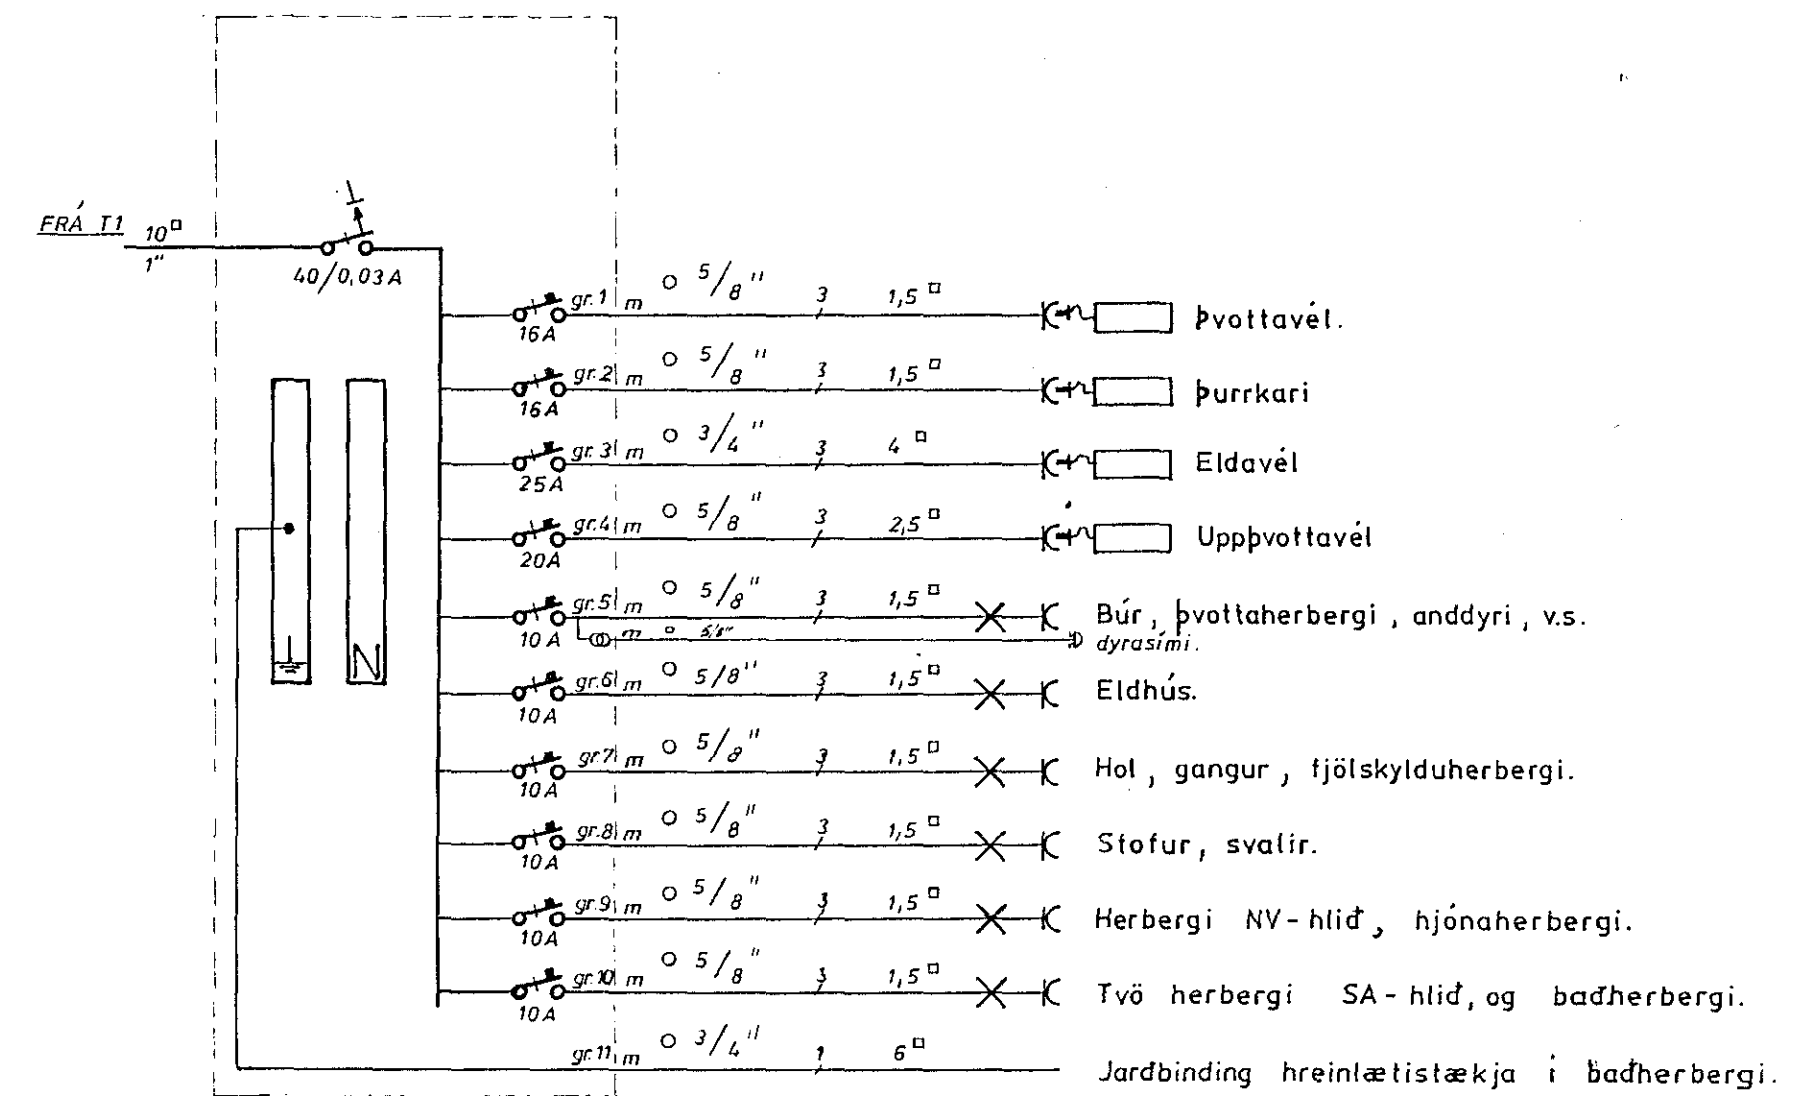 FRÁ T1 10□
1"
40/0,03 A
gr. 1 m ○ 5/8" 3 1,5□ Þvottavél.
16A
gr. 2 m ○ 5/8" 3 1,5□ Þurrkari
16A
gr. 3 m ○ 3/4" 3 4□ Eldavél
25A
gr. 4 m ○ 5/8" 3 2,5□ Uppþvottavél
20A
gr. 5 m ○ 5/8" 3 1,5□ Búr, þvottaherbergi, anddyri, v.s.
10A m □ 5/8" dyrasími.
gr. 6 m ○ 5/8" 3 1,5□ Eldhús.
10A
gr. 7 m ○ 5/8" 3 1,5□ Hol, gangur, fjölskylduherbergi.
10A
gr. 8 m ○ 5/8" 3 1,5□ Stofur, svalir.
10A
gr. 9 m ○ 5/8" 3 1,5□ Herbergi NV-hlið, hjónaherbergi.
10A
gr. 10 m ○ 5/8" 3 1,5□ Tvö herbergi SA-hlið, og baðherbergi.
10A
gr. 11 m ○ 3/4" 1 6□ Jarðbinding hreinlætistækja í baðherbergi.
N